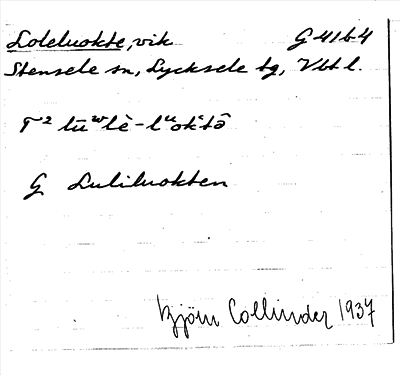 Loleluokte, vik G 41b4
Stensele sn, Lycksele tg, Vbt l.
T² lūʷlè-lᵘokᵗtə̂
G Luliluokten
Björn Collinder 1937